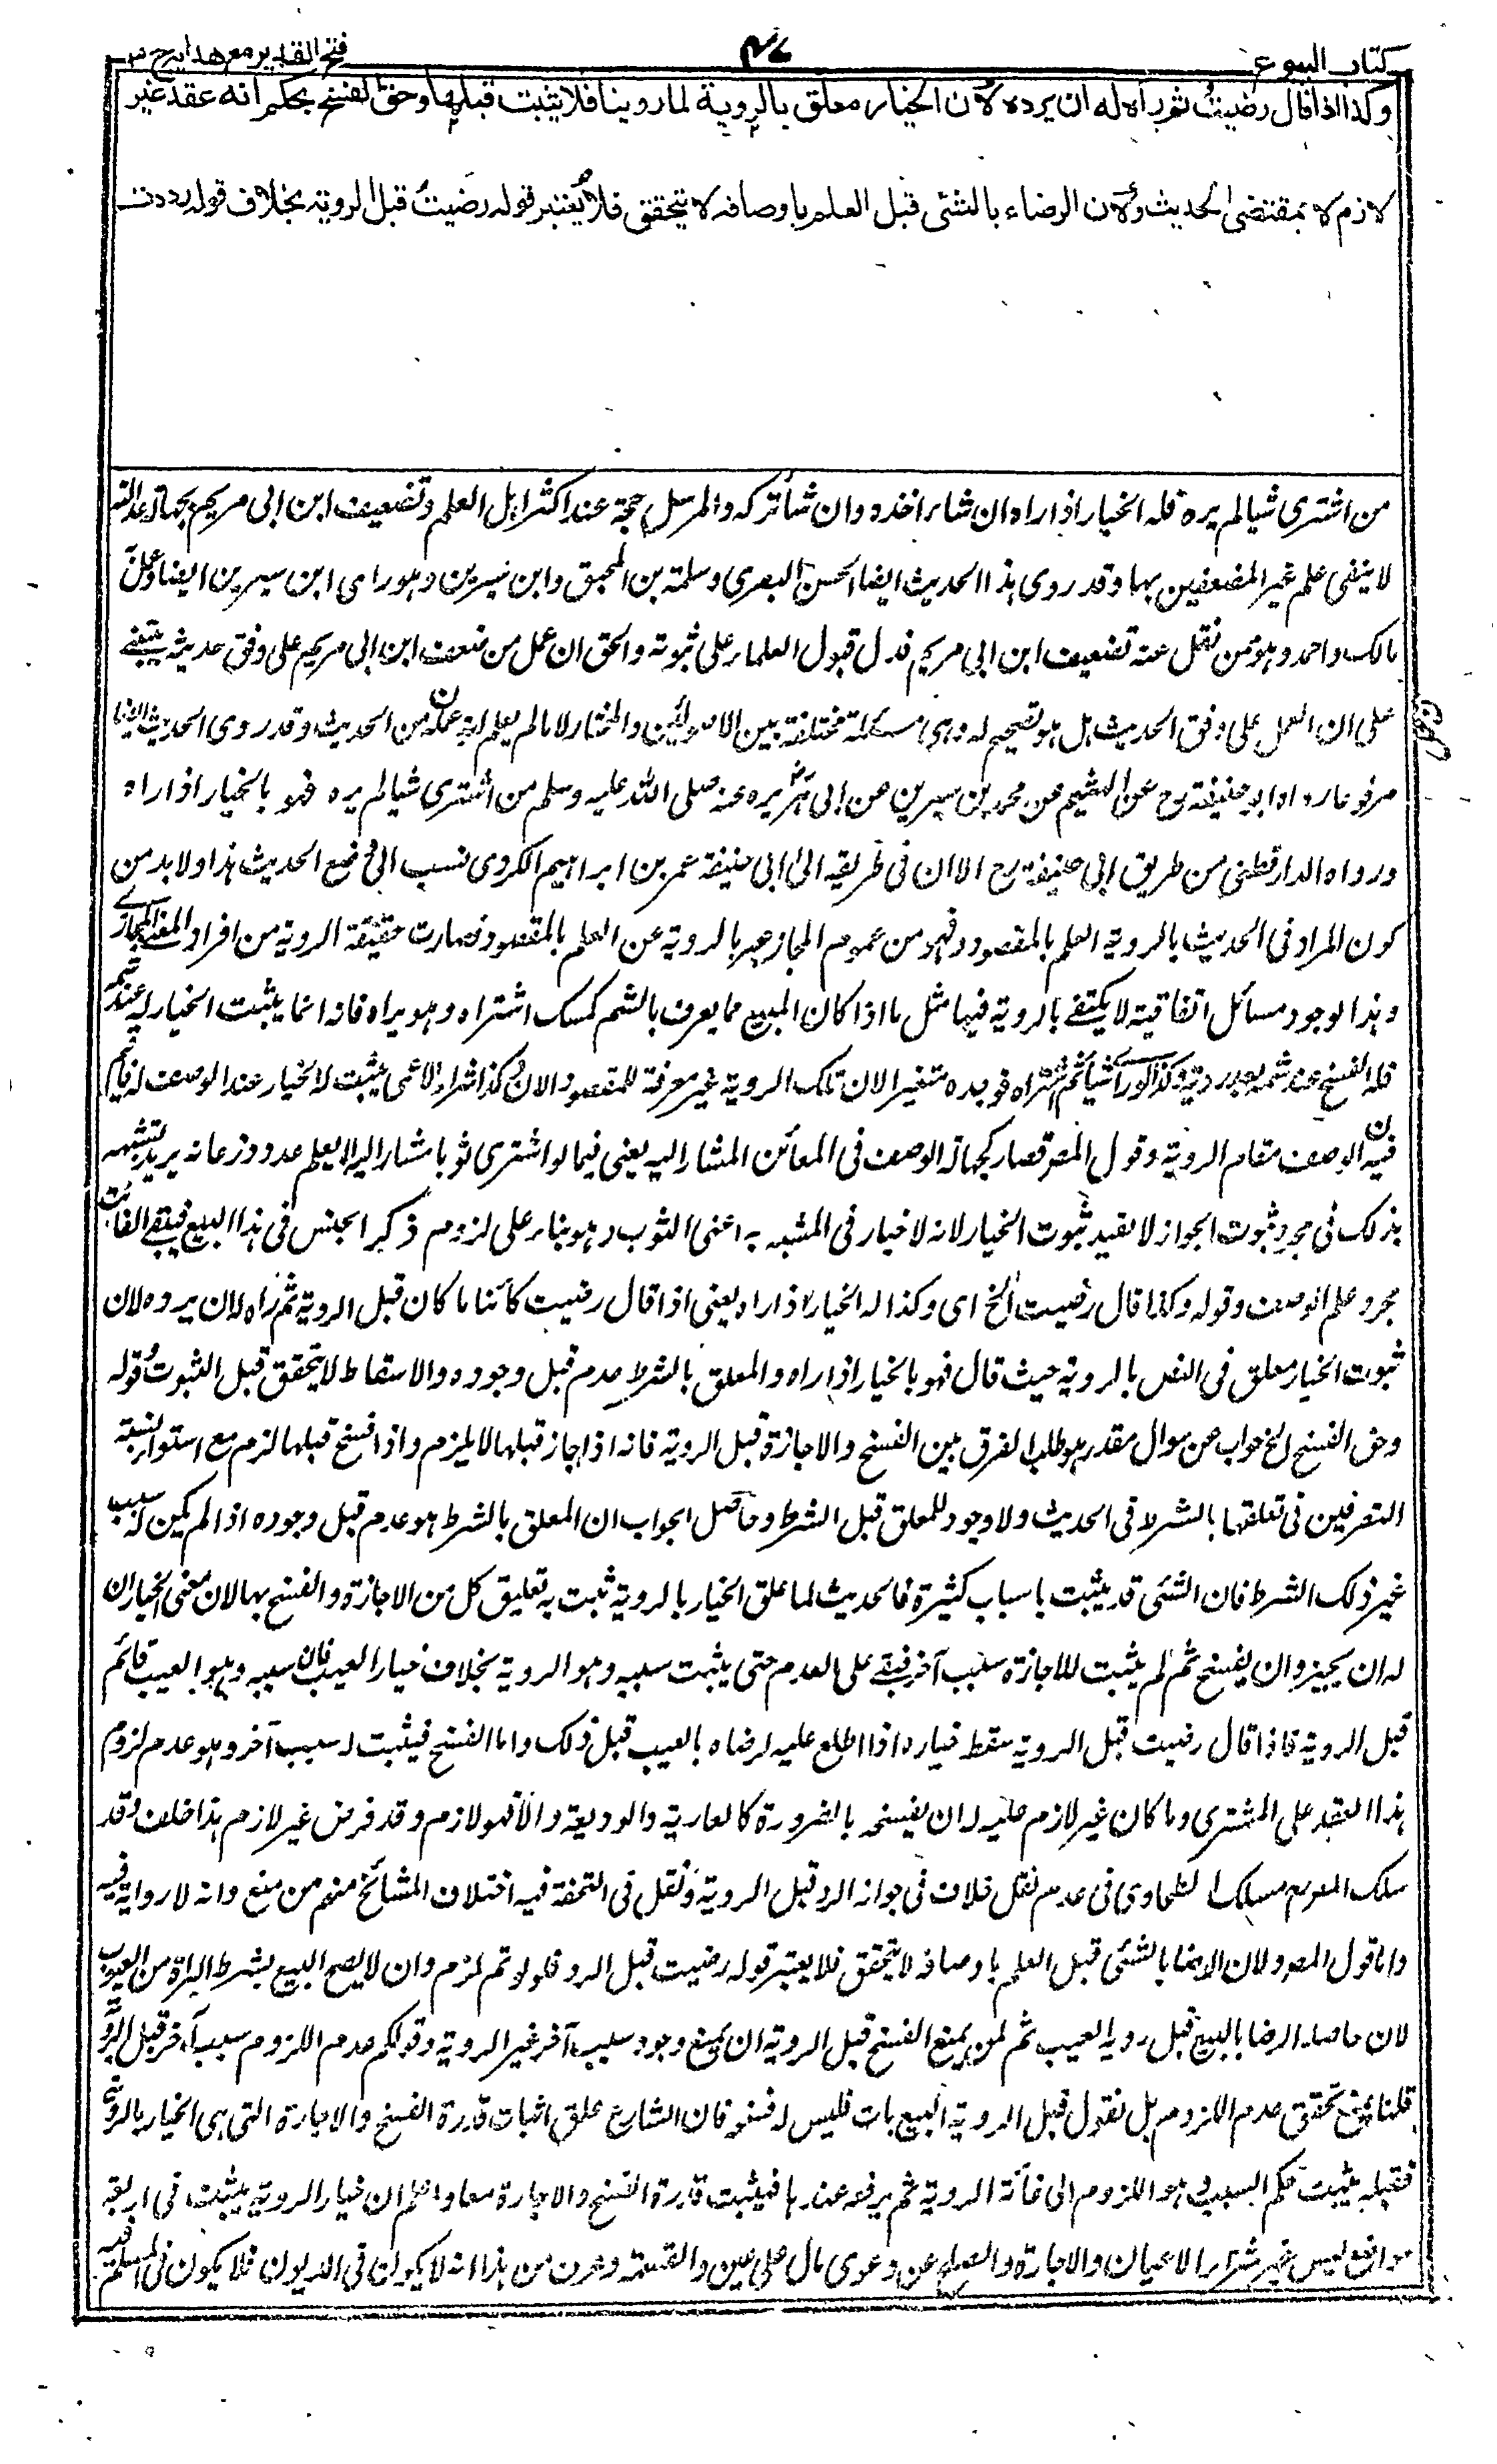 كتاب البيوع
فتح القدير مع هدايه ج ٣
وكذا اذا قال رضيت ثم راه له ان يرده لان الخيار معلق بالروية لما روينا فلا يثبت قبلها وحق الفسخ بحكم انه عقد غير
لازم لا بمقتضى الحديث ولان الرضاء بالشئى قبل العلم باوصافه لا يتحقق فلا يعتبر قوله رضيت قبل الروية بخلاف قوله رددت
من اشترى شيا لم يره فله الخيار اذا راه ان شاء اخذه وان شاء تركه والمرسل حجة عند اكثر اهل العلم وتضعيف ابن ابى مريم بجهالة عدالته
لا ينفى علم غير المضعفين بها وقد روى هذا الحديث ايضا الحسن البصرى وسلمة بن المحبق وابن سيرين وهو راى ابن سيرين ايضا وعمل
مالك واحمد وهو من نقل عنه تضعيف ابن ابى مريم فدل قبول العلماء على ثبوته والحق ان عمل من ضعف ابن ابى مريم على وفق حديثه يبتنى
على ان العمل على وفق الحديث هل هو تصحيح له وهى مسئلة مختلفة بين الاصوليين والمختار لا ما لم يعلم ان عمله عن الحديث وقد روى الحديث ايضا
مرفوعا رواه ابو حنيفة رح عن الهيثم عن محمد بن سيرين عن ابى هريره عنه صلى الله عليه وسلم من اشترى شيا لم يره فهو بالخيار اذا راه
ورواه الدارقطنى من طريق ابى حنيفة رح الا ان فى طريقه الى ابى حنيفة عمر بن ابراهيم الكردى نسب الى وضع الحديث هذا ولا بد من
كون المراد فى الحديث بالروية العلم بالمقصود فهو من عموم المجاز عبر بالروية عن العلم بالمقصود فصارت حقيقة الروية من افراد المعنى المجازى
وهذا لوجود مسائل اتفاقية لا يكتفى بالروية فيها مثل ما اذا كان المبيع مما يعرف بالشم كمسك اشتراه وهو يراه فانه انما يثبت الخيار له عند شمه
فله الفسخ عند شمه بعد رويته وكذا لو راى شيا ثم اشتراه فوجده متغيرا لان تلك الروية غير معرفة للمقصود الان وكذا شراء الاعمى يثبت له الخيار عند الوصف له فاقيم
فيه الوصف مقام الروية وقول المصر فصار كجهالة الوصف فى المعاين المشار اليه يعنى فيما لو اشترى ثوبا مشارا اليه لا يعلم عدد ذرعانه يريد تشبيهه
بذلك فى مجرد ثبوت الجواز لا بقيد ثبوت الخيار لانه لا خيار فى المشبه به اعنى الثوب وهو بناء على لزوم ذكر الجنس فى هذا البيع فيبقى الفائت
مجرد علم الوصف وقوله وكذا اذا قال رضيت الخ اى وكذا له الخيار اذا راه يعنى اذا قال رضيت كائنا ما كان قبل الروية ثم راه له ان يرده لان
ثبوت الخيار معلق فى النص بالروية حيث قال فهو بالخيار اذا راه والمعلق بالشرط عدم قبل وجوده والاسقاط لا يتحقق قبل الثبوت قوله
وحق الفسخ الخ جواب عن سوال مقدر هو طلب الفرق بين الفسخ والاجازة قبل الروية فانه اذا اجاز قبلها لا يلزم واذا فسخ قبلها لزم مع استواء نسبة
التصرفين فى تعلقها بالشرط فى الحديث ولا وجود للمعلق قبل الشرط وحاصل الجواب ان المعلق بالشرط هو عدم قبل وجوده اذا لم يكن له سبب
غير ذلك الشرط فان الشئى قد يثبت باسباب كثيرة فالحديث لما علق الخيار بالروية ثبت به تعليق كل من الاجازة والفسخ بها لان معنى الخيار ان
له ان يجيز وان يفسخ ثم لم يثبت للاجازة سبب آخر فيبقى على العدم حتى يثبت سببه وهو الروية بخلاف خيار العيب فان سببه وهو العيب قائم
قبل الروية فاذا قال رضيت قبل الروية سقط خياره اذا اطلع عليه لرضاه بالعيب قبل ذلك واما الفسخ فيثبت له سبب آخر وهو عدم لزوم
هذا العقد على المشترى وما كان غير لازم عليه له ان يفسخه بالضرورة كالعارية والوديعة والا فهو لازم وقد فرض غير لازم هذا خلف وقد
سلك المصر مسلك الطحاوى فى عدم نقل خلاف فى جواز الرد قبل الروية ونقل فى التحفة فيه اختلاف المشائخ منهم من منع وانه لا رواية فيه
واما قول المصر ولان الرضا بالشئى قبل العلم باوصافه لا يتحقق فلا يعتبر قوله رضيت قبل الرد فلو تم لزم وان لا يصح البيع بشرط البراة من العيوب
لان حاصله الرضا بالمبيع قبل روية العيب ثم لمن يمنع الفسخ قبل الروية ان يمنع وجود سبب آخر غير الروية وقولكم عدم اللزوم سبب آخر قبل الروية
قلنا نمنع تحقق عدم اللزوم بل نقول قبل الروية البيع بات فليس له فسخه فان الشارع علق اثبات قدرة الفسخ والاجازة التى هى الخيار بالروية
فقبله يثبت حكم السبب هو اللزوم الى غاية الروية ثم يرفعه عندها فيثبت قدرة الفسخ والاجازة معا واعلم ان خيار الروية يثبت فى اربعة
مواضع ليس غير شراء الاعيان والاجارة والصلح عن دعوى مال على عين والقسمة وعرف من هذا انه لا يكون فى الديون فلا يكون فى المسلم فيه